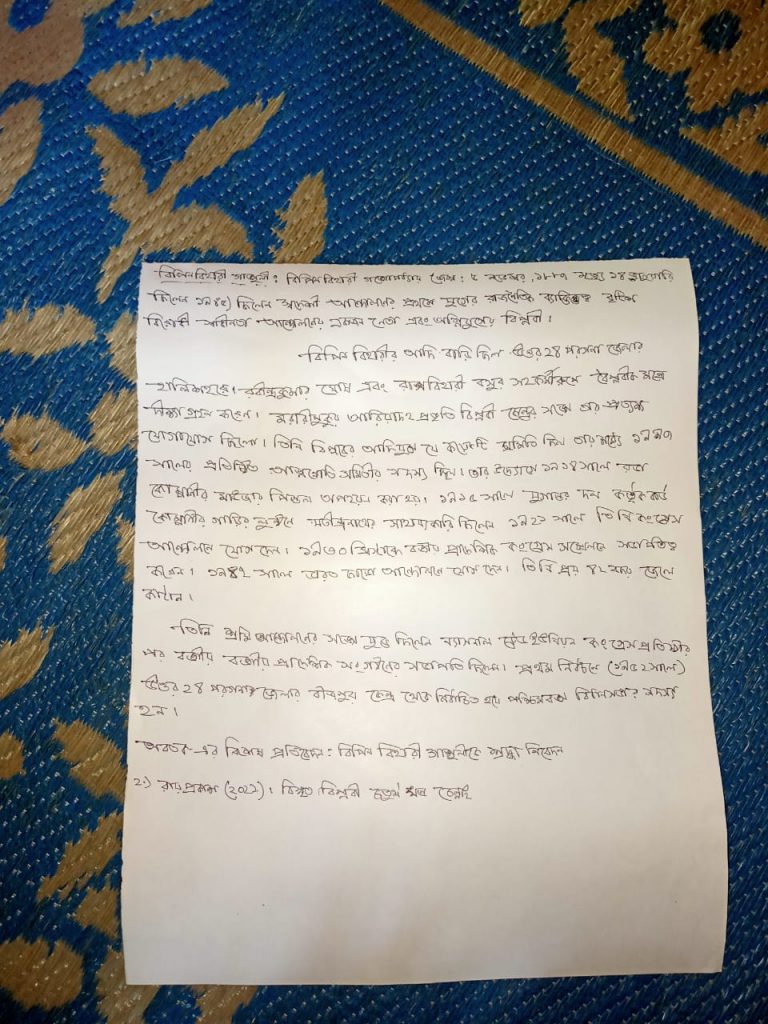 বিপিনবিহারী গাঙ্গুলী : বিপিনবিহারী গঙ্গোপাধ্যায় (জন্ম : ৫ নভেম্বর, ১৮৮৭ মৃত্যু ১৪ জানুয়ারি
ছিলেন ১৯৫৪) ছিলেন স্বদেশী আন্দোলনের প্রথম যুগের রাজনৈতিক ব্যক্তিত্ব বৃটিশ
বিরোধী স্বাধীনতা আন্দোলনের একজন নেতা এবং অগ্নিযুগের বিপ্লবী।
বিপিন বিহারীর আদি বাড়ি ছিল উত্তর 24 পরগনা জেলার
হালিশহরে। বারীন্দ্রকুমার ঘোষ এবং রাসবিহারী বসুর সহকর্মীরূপে বৈপ্লবিক মন্ত্রে
দীক্ষা গ্রহণ করেন। মুরারীপুকুর আরিয়াদহ প্রভৃতি বিপ্লবী কেন্দ্রের সঙ্গে তার প্রত্যক্ষ
যোগাযোগ ছিলো। তিনি বিপ্লবের আদিযুগে যে কয়েকটি সমিতি ছিল তার মধ্যে
সালের প্রতিষ্ঠিত আত্মোন্নতি সমিতির সদস্য ছিল। তার উদ্যোগে ১৯১৪ সালে রডা
কোম্পানীর মাউজার পিস্তল অপহরণ করা হয়। ১৯১৫ সালে যুগান্তর দল কর্তৃক বার্ড
কোম্পানীর গাড়ির লুণ্ঠনে যতীন্দ্রনাথের সাহায্যকারি ছিলেন ১৯২১ সালে তিনি কংগ্রেস
আন্দোলনে যোগ দেন। ১৯৩০ খ্রিস্টাব্দে বঙ্গীয় প্রাদেশিক কংগ্রেস সম্মেলনে সভাপতিত্ব
করেন। ১৯৪২ সালে ভারত ছাড়ো আন্দোলনে যোগ দেন। তিনি প্রায় জেলে
কাটান।
তিনি শ্রমিক আন্দোলনের সঙ্গে যুক্ত ছিলেন ন্যাশনাল ট্রেড ইউনিয়ন কংগ্রেস প্রতিষ্ঠার
পর বঙ্গীয় বঙ্গীয় প্রাদেশিক সংগঠনের সভাপতি ছিলেন। প্রথম নির্বাচনে (১৯৫২ সালে)
উত্তর 24 পরগনা জেলার বীজপুর কেন্দ্র থেকে নির্বাচিত হয়ে পশ্চিমবঙ্গ বিধানসভার সদস্য
হন।
এর বিশেষ প্রতিবেদন : বিপিন বিহারী গাঙ্গুলীকে শ্রদ্ধা নিবেদন
২.) রায় প্রকাশ (২০২১)। বিস্মৃত বিপ্লবী